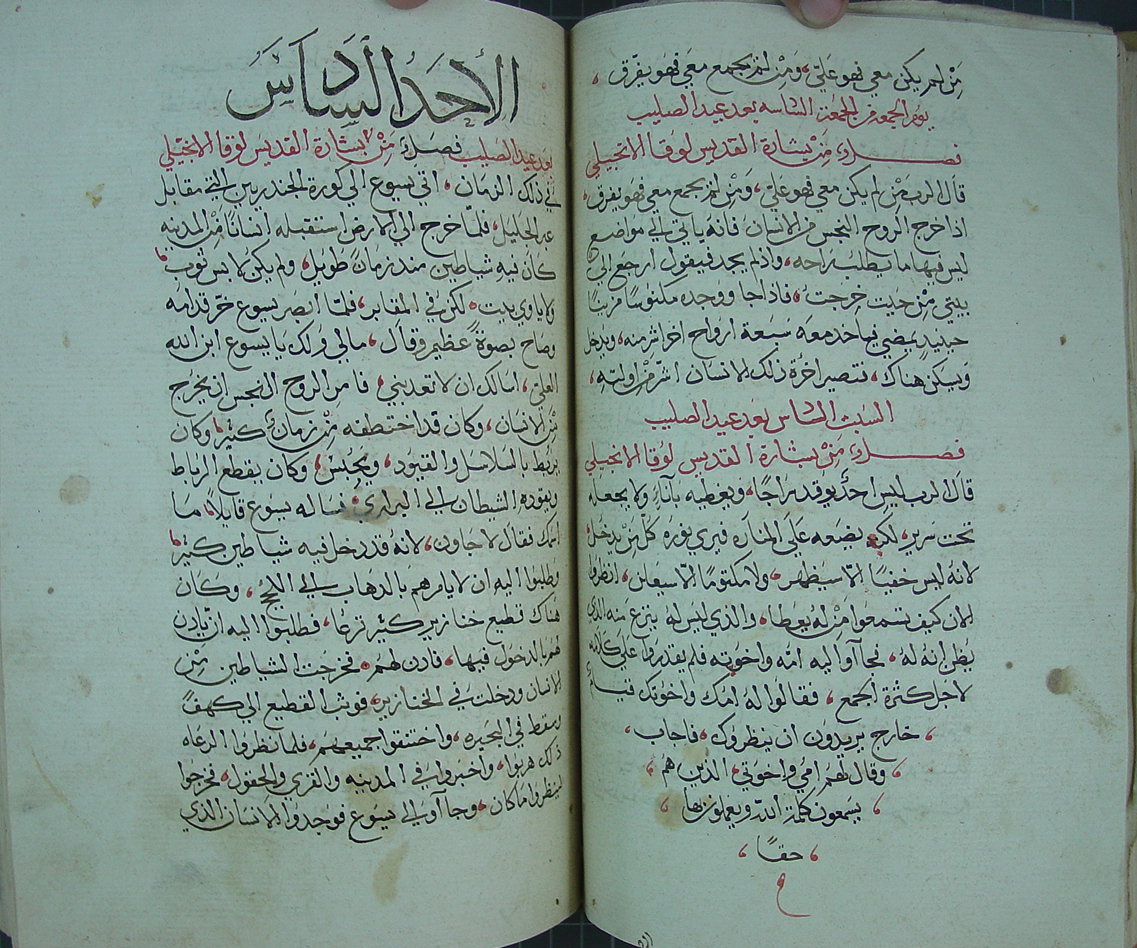 مَن لم يكن معي فهو عليّ، ومَن لم يجمع معي فهو يفرق،
يوم الجمعه من الجمعة السادسه بعد عيد الصليب
فصل من بشارة القديس لوقا الانجيلي
قال الرب مَن لم يكن معي فهو علي، ومَن لم يجمع معي فهو يفرق،
اذا خرج الروح النجس من الانسان فانه ياتي الي مواضع
ليس فيها ما يطلب راحه، واذ لم يجد فيقول ارجع الي
بيتي مِن حيت خرجت، فاذا جا ووجده مكنوسًا مزينًا
حينيدٍ يمضي ياخد معه سبعة ارواح اخر اشر منه، ويدخل
ويسكن هناك، فتصير اخرة ذلك الانسان اشرّ مِن اولته،
السبت السادس بعد عيد الصليب
فصل من بشارة القديس لوقا الانجيلي
قال الرب ليس احدٌ يوقد سراجًا، ويغطيه بآناءٍ ولا يجعله
تحت سرير، لكن يضعه علي المناره فيري نوره كل مَن يدخل،
لانه ليس خفيًا الّا سيظهر، ولا مكتومًا الّا سيعلن، انظروا
الان كيف تسمعوا مَن له يعطا، والذي ليس له ينزع منه الذي
يظن انه له، فجاآوا اليه امّه واخوته فلم يقدروا علي كلامه
لاجل كثرة الجمع، فقالوا له امك واخوتك قيام
خارج يريدون ان ينظروك، فاجاب،
وقال لهم امي واخوتي، الذين هم،
يسمعون كلمة الله ويعملون بها،
حقًا
الأحَدُ السَّادسَ
بعد عيد الصليب فصل مَن بشارة القديس لوقا الانجيلي
في ذلك الزمان، اتي يسوع الي كورة الجدريين التي مقابل
عبر الجليل، فلمّا خرج الي الارض استقبله انسانًا مِن المدينه
كان فيه شياطين مند زمان طويل، ولم يكن لابس ثوب،
ولا ياوي بيت، لكن في المقابر، فلمّا ابصر يسوع خرّ قدامه
وصاح بصوةٍ عظيم وقال، مالي ولك يا يسوع ابن الله
العلي، اسالك ان لا تعدبني، فامر الروح النجس ان يخرج
مِن الانسان، وكان قد اختطفه مِن زمان كثير، وكان
يربط بالسلاسل والقيود، ويحبس، وكان يقطع الرباط
ويقوده الشيطان الي البراري، فساله يسوع قايلًا، ما
اسمك فقال لاجاون، لانه قد دخل فيه شياطين كثير،
وطلبوا اليه ان لا يامرهم بالدهاب الي اللج، وكان
هناك قطيع خنازير كثير ترعا، فطلبوا اليه ان يادن
لهم بالدخول فيها، فادن لهم، فخرجت الشياطين مِن
الانسان ودخلت في الخنازير، فوثب القطيع الي كهفٍ
وسقط في البحيره، واختنقوا جميعهم، فلما نظروا الرعاه
ذلك هربوا، واخبروا في المدينه والقري والحقول، فخرجوا
لينظروا ما كان، وجاآوا الي يسوع فوجدوا الانسان الذي